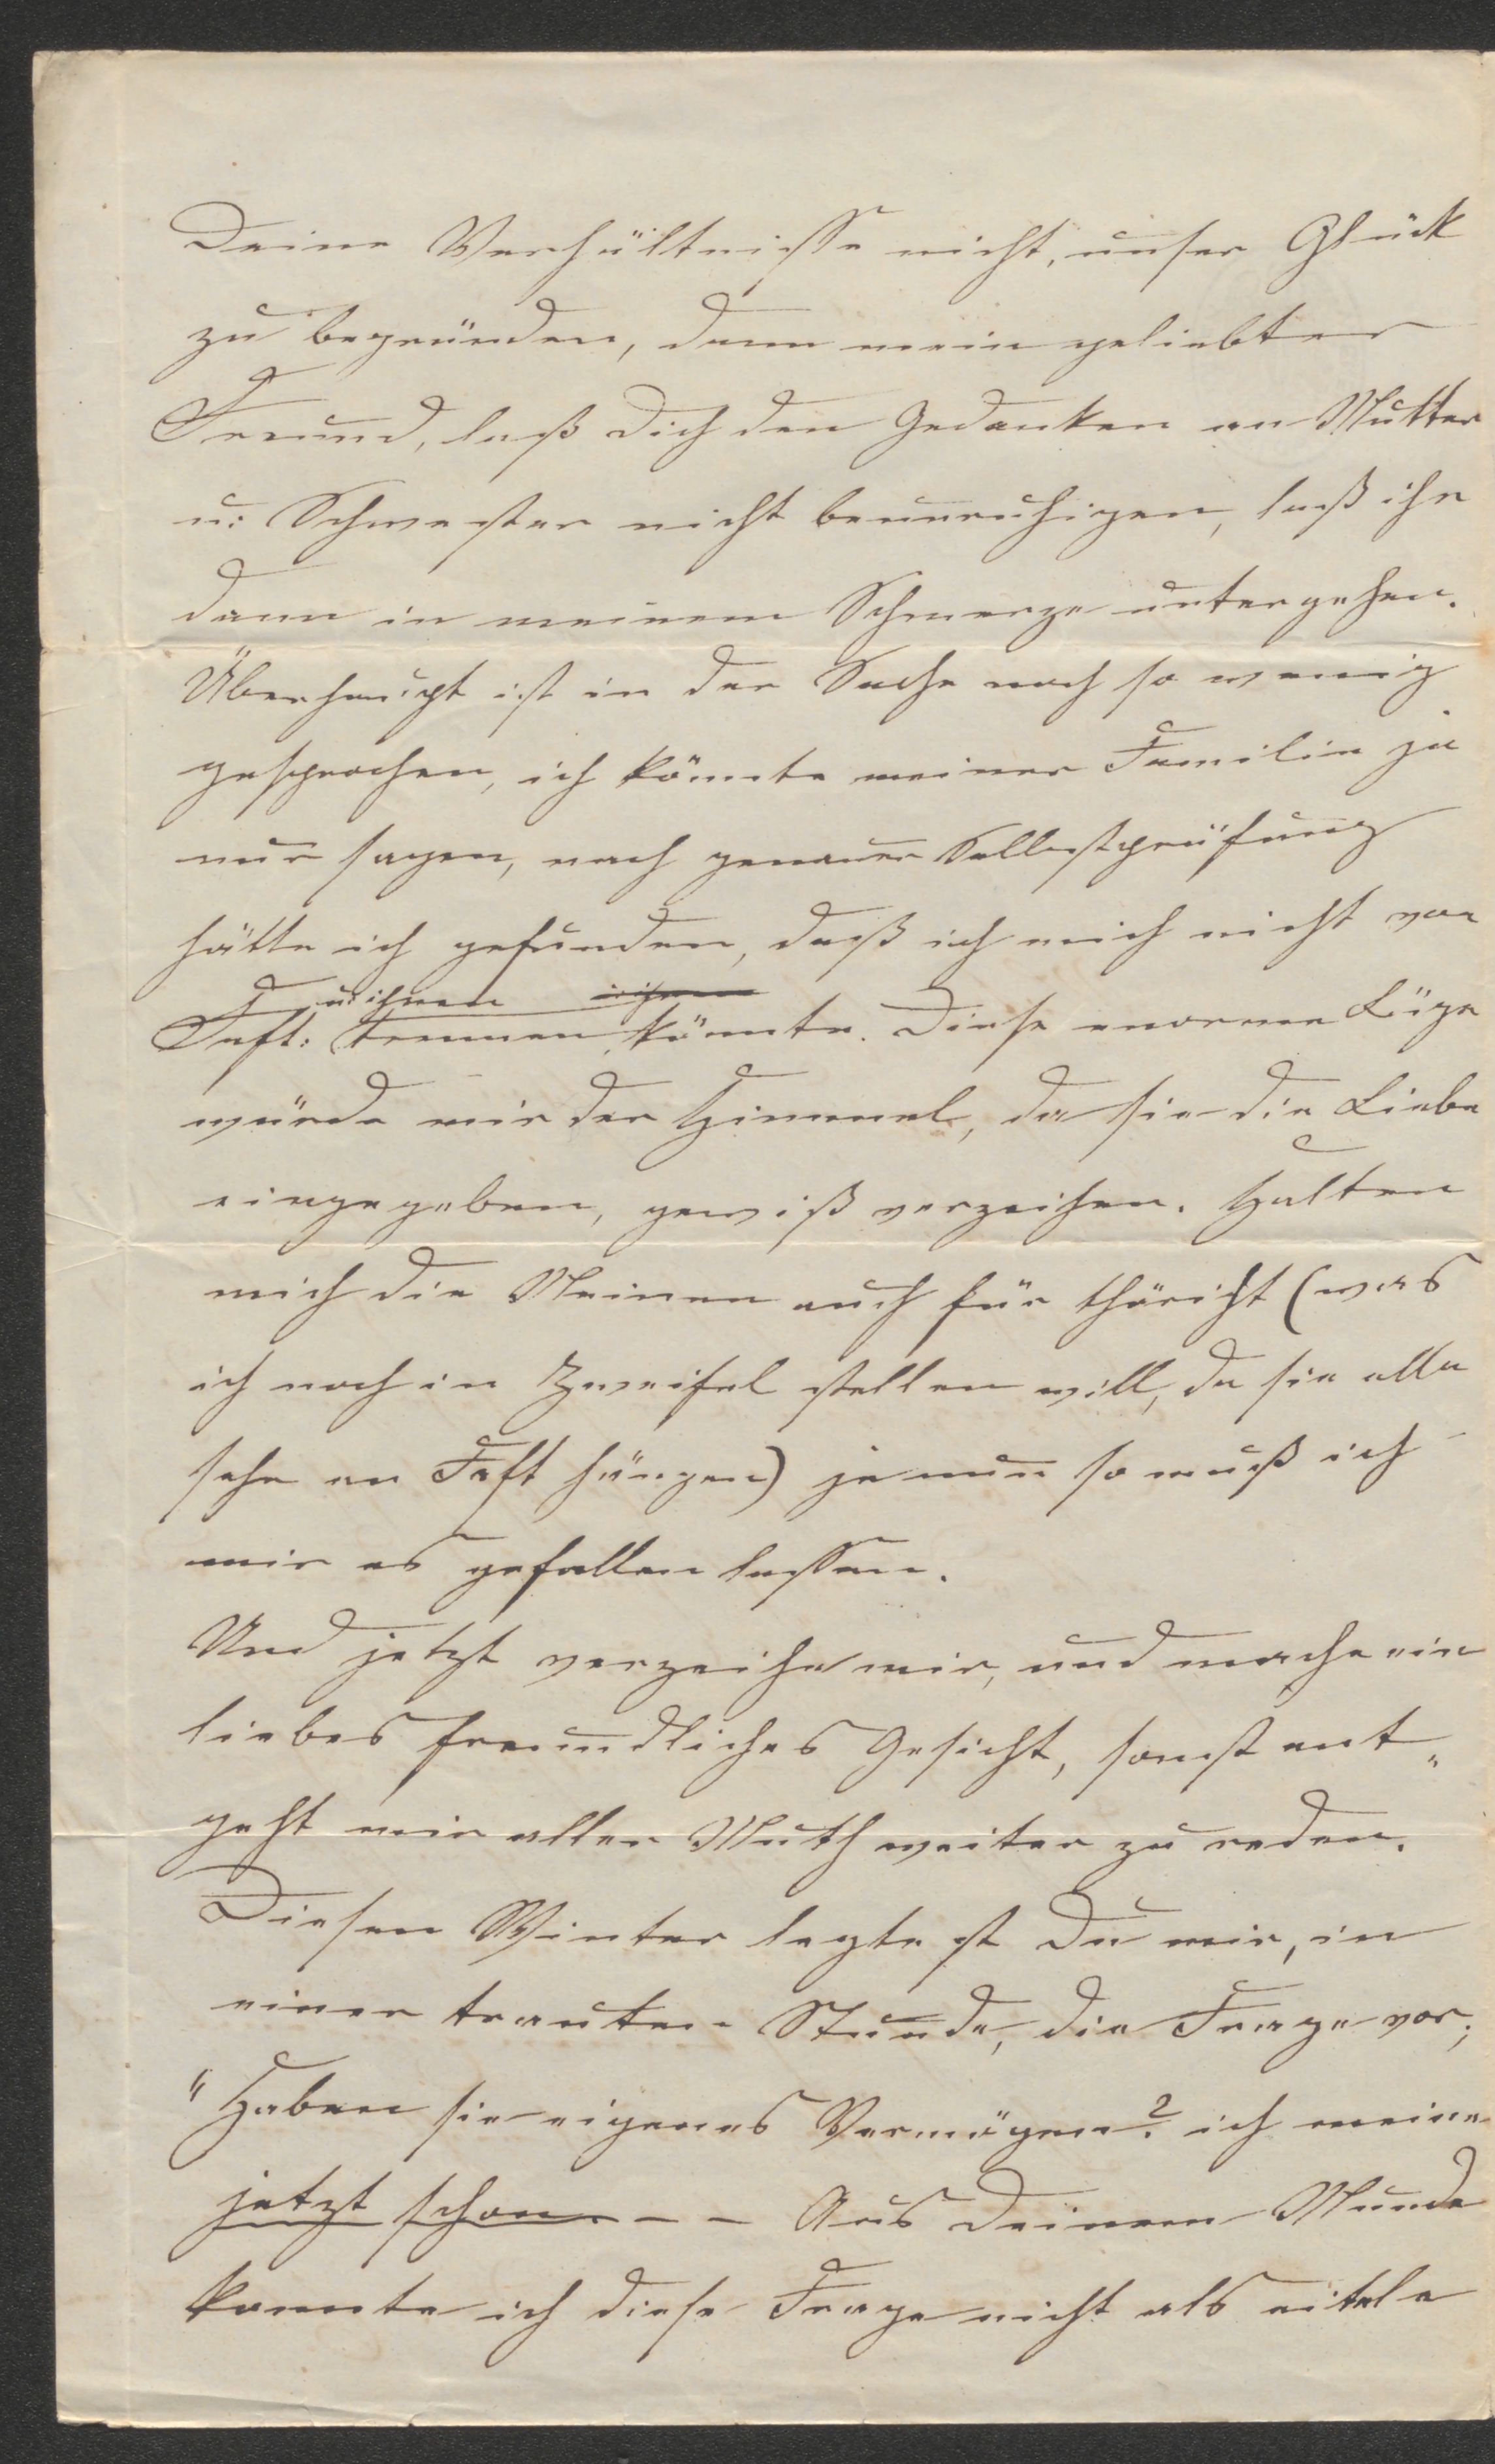 Deine Verhältnisse nicht, unser Glück
zu begründen, dann mein geliebter
Freund, laß Dich den Gedanken an Mutter
u: Schwester nicht beunruhigen, laß ihn
dann in meinem Schmerze untergehen.
Überhaupt ist in der Sache noch so wenig
gesprochen, ich könnte meiner Familie ja
nur sagen, nach genauer Selbstprüfung
hätte ich gefunden, daß ich mich nicht von
u: ihnen
trennen könnte. Diese enorme Lüge
würde mir der Himmel, da sie die Liebe
eingegeben, gewiß verzeihen. Halten
mich die Meinen auch für thöricht (was
ich noch in Zweifel stellen will, da sie alle
sehr an hängen) je nun so muß ich
mir es gefallen lassen.
Und jetzt verzeihe mir, und mache ein
liebes freundliches Gesicht, sonst ent„
geht mir aller Muth weiter zu reden.
Diesen Winter legtest Du mir, in
einer trauten Stunde, die Frage vor;
"Haben sie eigenes Vermögen? ich meine
jetzt schon. - - Aus Deinem Munde
konnte ich diese Frage nicht als eitele